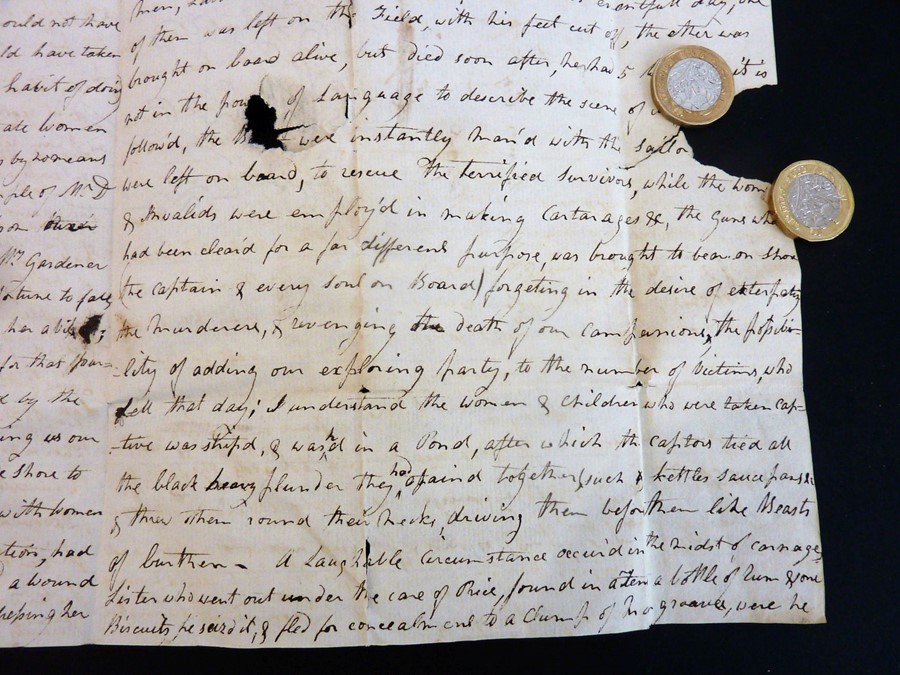 ould not have
ld have taken
habit of doing
ate women
by no means
mple of Mr D
on
Mrs Gardener
fortune to face
her a
for that pur=
d by the
ing us our
e shore to
with women
ation, had
a wound
keeping her
men,
eventfull day, one
of them was left on the Field, with his feet cut off, the other was
brought on board alive, but died soon after, he had 5 it is
not in the pow of Language to describe the scene of
follow'd, the B were instantly man'd with the sailo
were left on board, to rescue the terrified survivors, while the wom
& Invalids were employ'd in making Cartarages &c, the Guns wh
had been clear'd for a far different purpose, was brought to bear on shore
the captain & every soul on Board) forgeting in the desire of exterpating
the murderers, & revenging the death of our companions, the possibi=
=lity of adding our exploring party, to the number of victims, who
fell that day; I understand the women & children who were taken cap=
=tive was strip'd, & wash'd in a Pond, after which the captors tied all
the black heavy plunder they had obtaind together (such as kettles sauce pans &c
& threw them round their necks, driving them before them like Beasts
of burthen - A Laughable Circumstance occur'd in the midst of carnage,
Lister who went out under the care of Price, found in a Tent a bottle of Rum & some
Biscuits he seizd it, & fled for concealment to a Clump of Mangroaves, were he